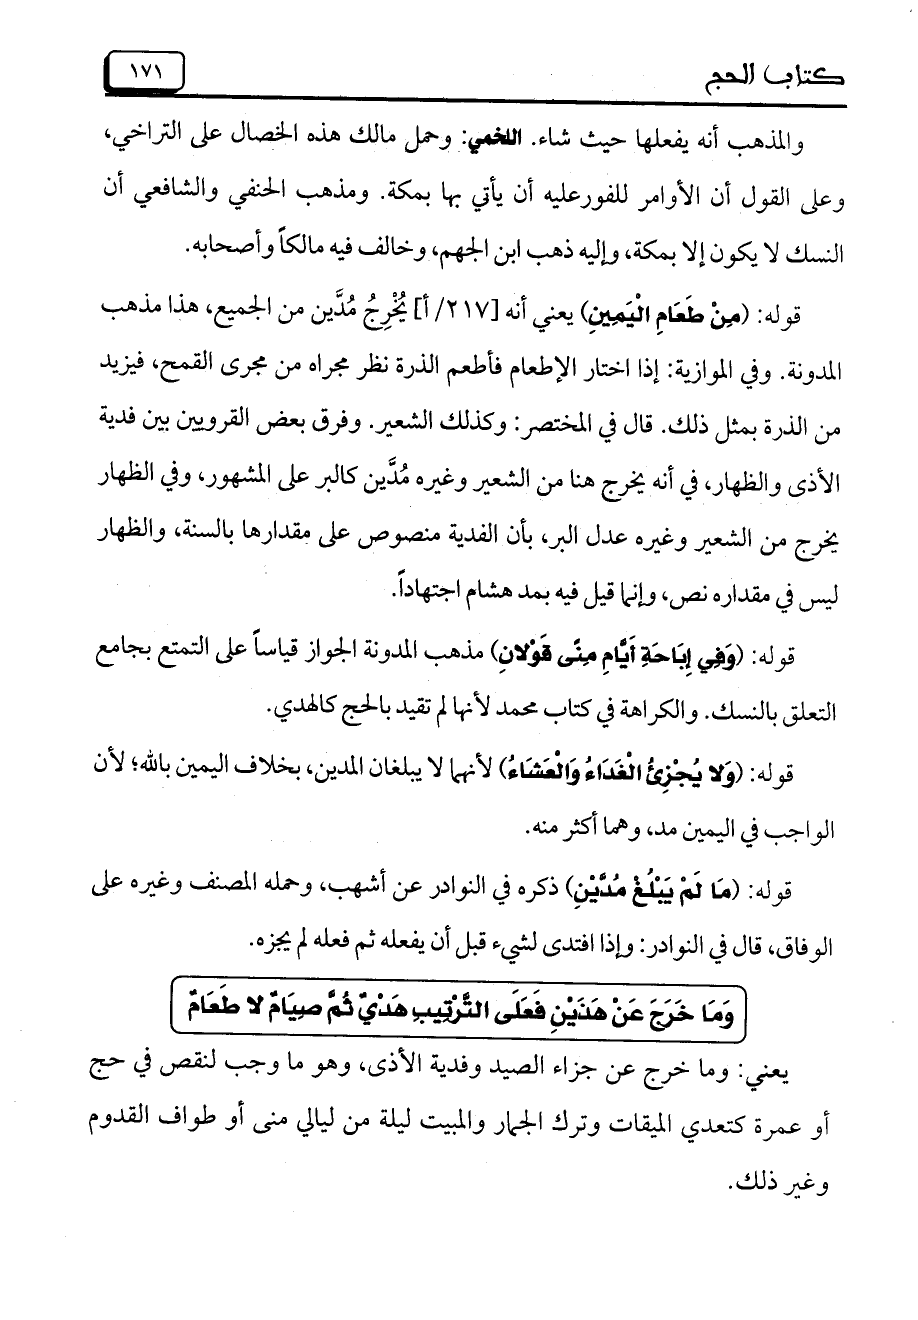 كتاب الحج
١٧١
والمذهب أنه يفعلها حيث شاء. اللخمي: وحمل مالك هذه الخصال على التراخي،
وعلى القول أن الأوامر للفورعليه أن يأتي بها بمكة. ومذهب الحنفي والشافعي أن
النسك لا يكون إلا بمكة، وإليه ذهب ابن الجهم، وخالف فيه مالكاً وأصحابه.
قوله: (مِنْ طَعَامِ الْيَمِينِ) يعني أنه [٢١٧/ أ] يُخْرِجُ مُدَّين من الجميع، هذا مذهب
المدونة. وفي الموازية: إذا اختار الإطعام فأطعم الذرة نظر مجراه من مجرى القمح، فيزيد
من الذرة بمثل ذلك. قال في المختصر: وكذلك الشعير. وفرق بعض القرويين بين فدية
الأذى والظهار، في أنه يخرج هنا من الشعير وغيره مُدَّين كالبر على المشهور، وفي الظهار
يخرج من الشعير وغيره عدل البر، بأن الفدية منصوص على مقدارها بالسنة، والظهار
ليس في مقداره نص، وإنما قيل فيه بمد هشام اجتهاداً.
قوله: (وَفِي إِبَاحَةِ أَيَّامِ مِنًى قَوْلانِ) مذهب المدونة الجواز قياساً على التمتع بجامع
التعلق بالنسك. والكراهة في كتاب محمد لأنها لم تقيد بالحج كالهدي.
قوله: (وَلا يُجْزِئُ الْغَدَاءُ وَالْعَشَاءُ) لأنهما لا يبلغان المدين، بخلاف اليمين بالله؛ لأن
الواجب في اليمين مد، وهما أكثر منه.
قوله: (مَا لَمْ يَبْلُغْ مُدَّيْنِ) ذكره في النوادر عن أشهب، وحمله المصنف وغيره على
الوفاق، قال في النوادر: وإذا افتدى لشيء قبل أن يفعله ثم فعله لم يجزه.
وَمَا خَرَجَ عَنْ هَذَيْنِ فَعَلَى التَّرْتِيبِ هَدْيٌ ثُمَّ صِيَامٌ لا طَعَامٌ
يعني: وما خرج عن جزاء الصيد وفدية الأذى، وهو ما وجب لنقص في حج
أو عمرة كتعدي الميقات وترك الجمار والمبيت ليلة من ليالي منى أو طواف القدوم
وغير ذلك.